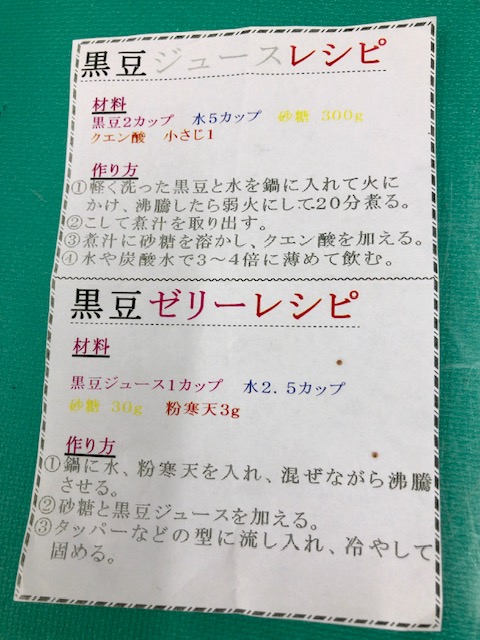 黒豆ジュースレシピ
材料
黒豆2カップ 水5カップ 砂糖 300g
クエン酸 小さじ1
作り方
①軽く洗った黒豆と水を鍋に入れて火に
かけ、沸騰したら弱火にして20分煮る。
②こして煮汁を取り出す。
③煮汁に砂糖を溶かし、クエン酸を加える。
④水や炭酸水で3〜4倍に薄めて飲む。
黒豆ゼリーレシピ
材料
黒豆ジュース1カップ 水2.5カップ
砂糖 30g 粉寒天3g
作り方
①鍋に水、粉寒天を入れ、混ぜながら沸騰
させる。
②砂糖と黒豆ジュースを加える。
③タッパーなどの型に流し入れ、冷やして
固める。